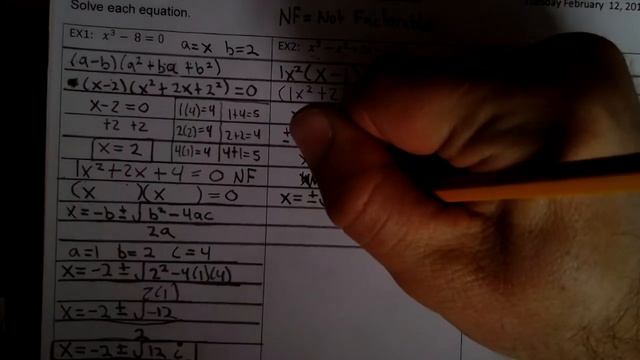 Solve each equation.
NF = Not Factorable
Tuesday February 12, 201
EX1: x³ - 8 = 0
a=x b=2
(a-b)(a²+ba+b²)
(x-2)(x²+2x+2²)=0
x-2=0
+2 +2
x=2
1(4)=4 1+4=5
2(2)=4 2+2=4
4(1)=4 4+1=5
1x²+2x+4=0 NF
(x )(x )=0
x=-b±√b²-4ac
2a
a=1 b=2 c=4
x=-2±√2²-4(1)(4)
2(1)
x=-2±√-12
2
x=-2±√12 i
EX2: x³ - x²
1x²(x-1
(1x²+2
x=±